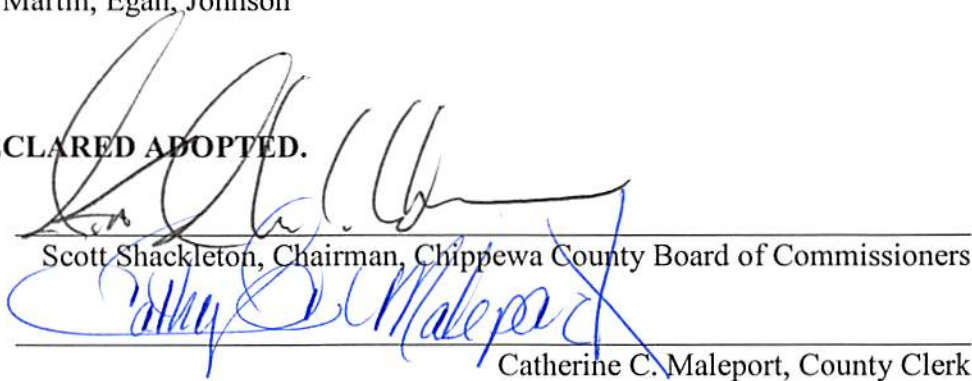 Martin, Egan, Johnson
CLARED ADOPTED.
Scott Shackleton, Chairman, Chippewa County Board of Commissioners
Cathy C. Maleport
Catherine C. Maleport, County Clerk